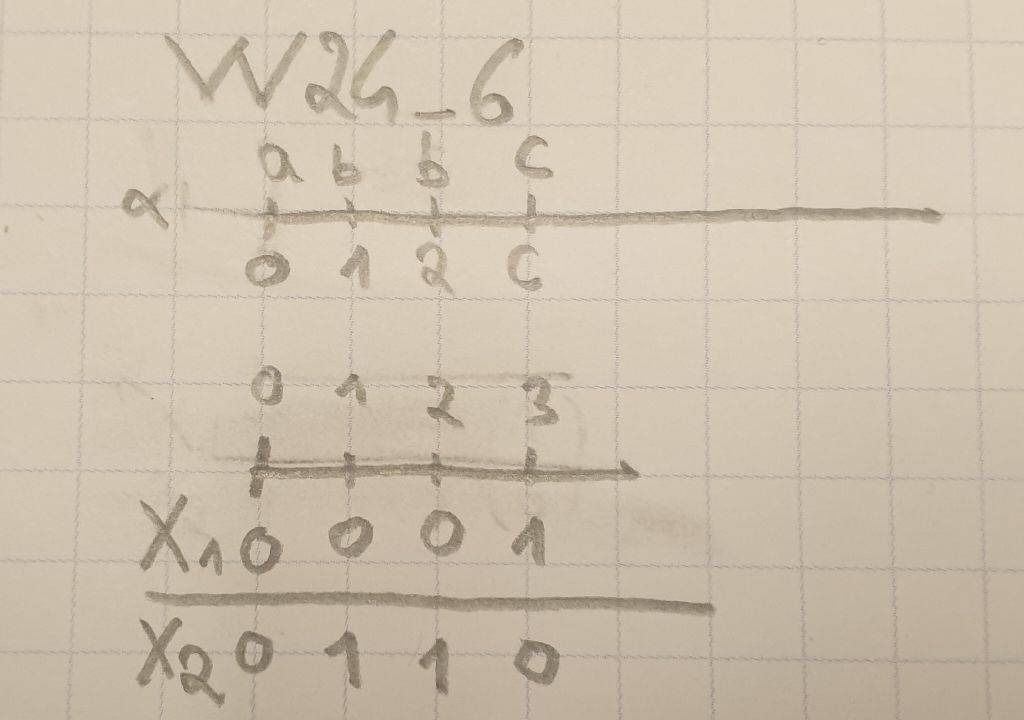 W24_6
a b b c
α
0 1 2 C
0 1 2 3
X1 0 0 0 1
X2 0 1 1 0